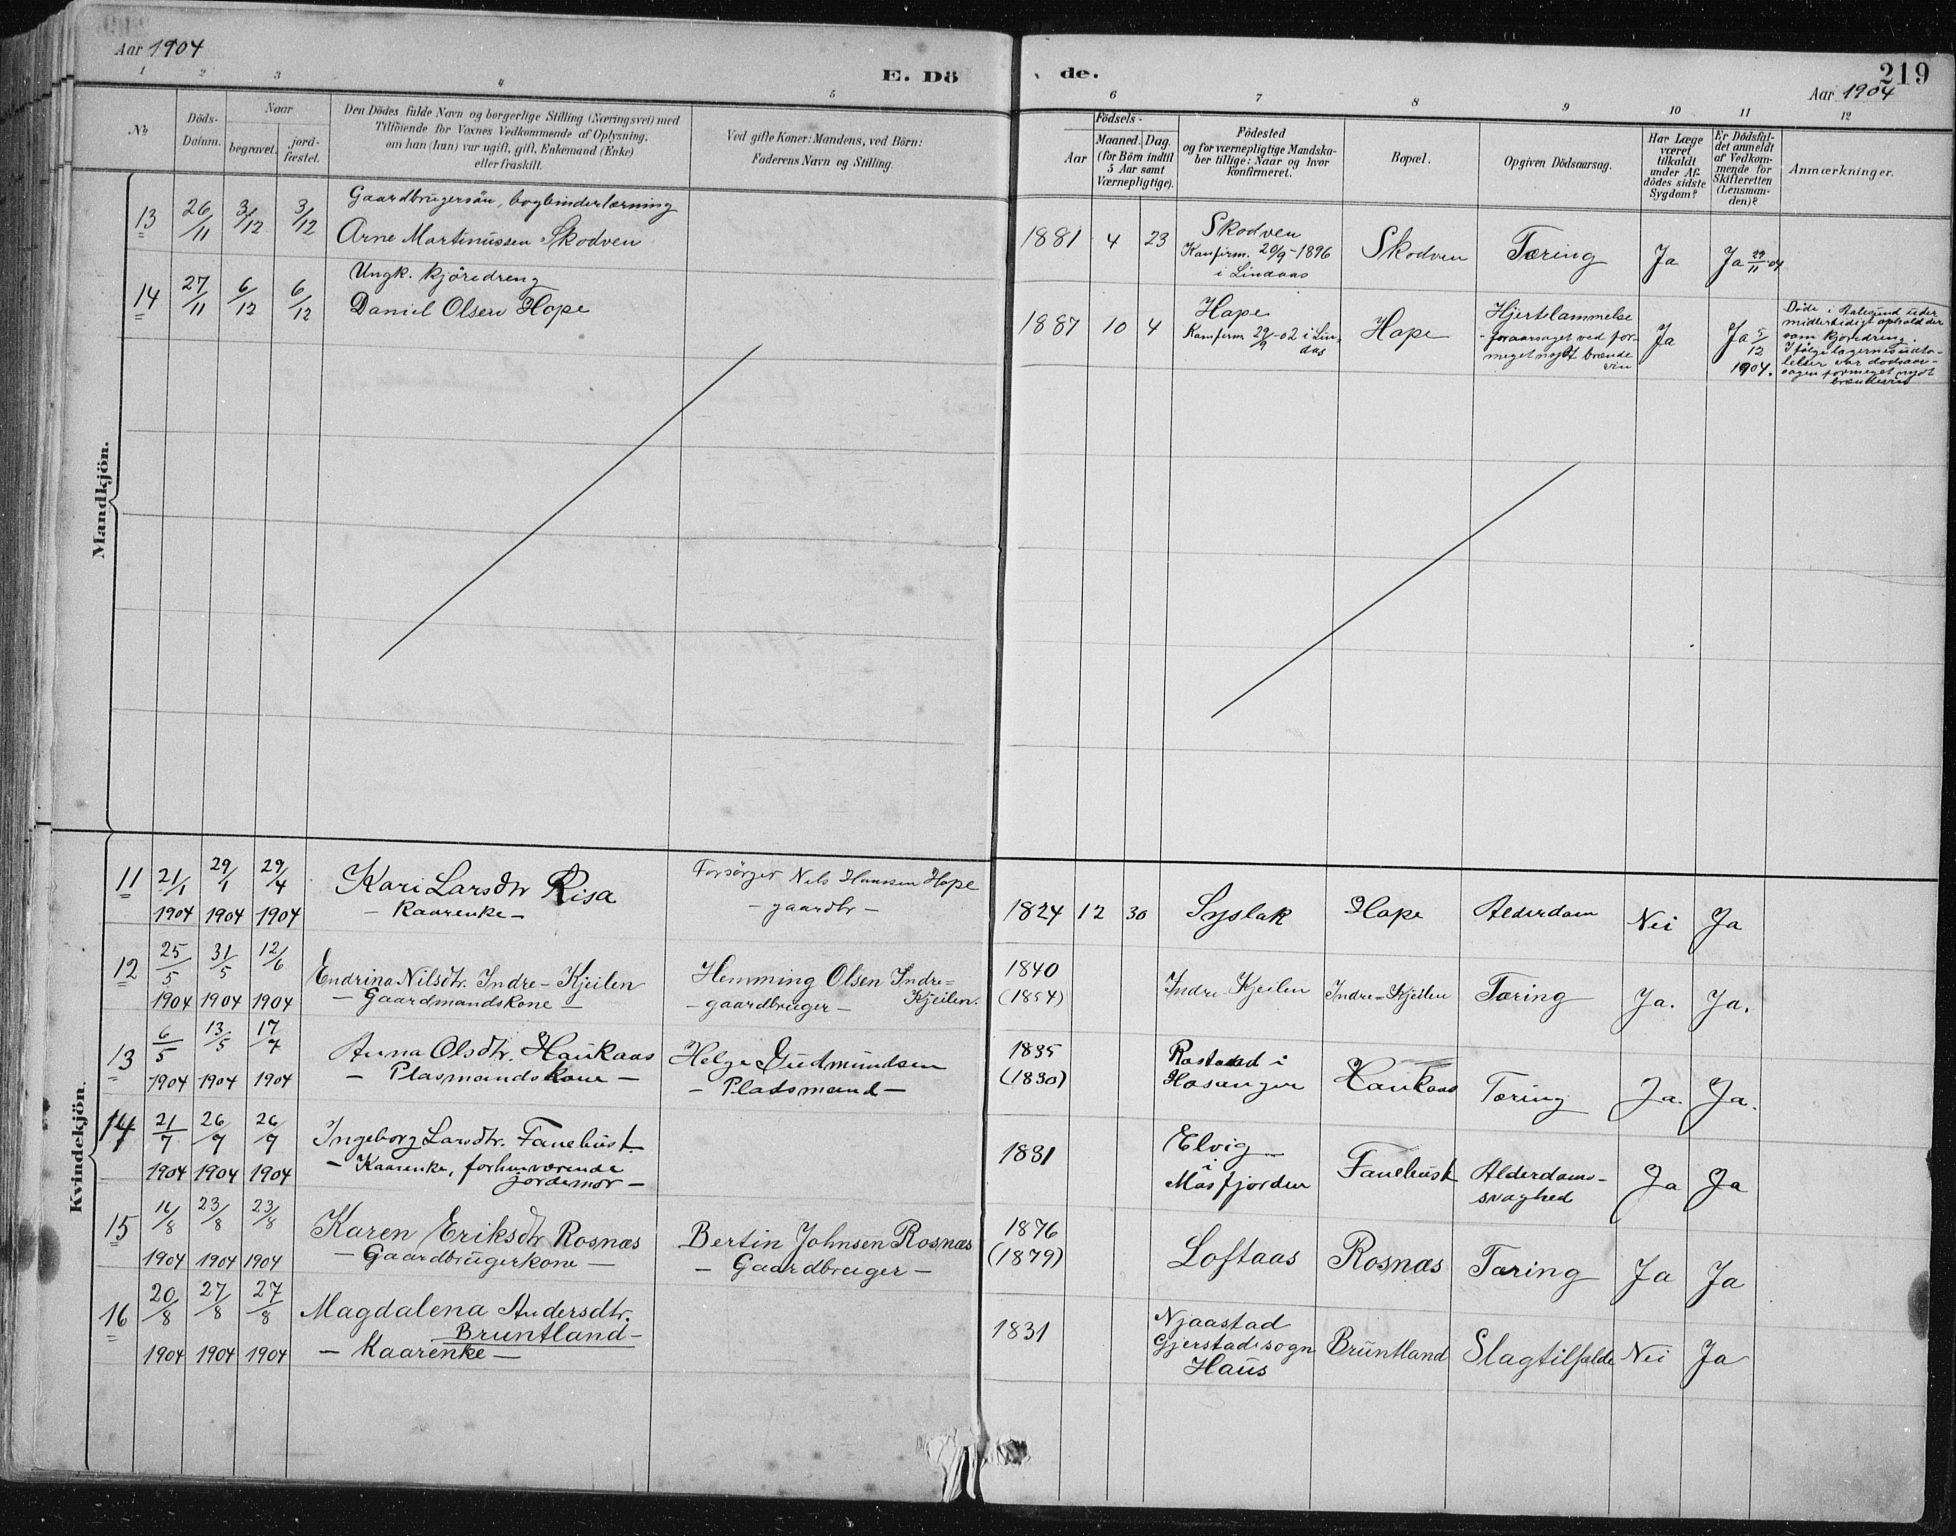 Aar 1904
E. Dö
de.
219
Aar 1904
1 2 3 4 5 6 7 8 9 10 11 12
No.
Döds-
Datum.
Naar
begravet.
jord-
fæstet.
Den Dödes fulde Navn og borgerlige Stilling (Næringsvei) med
Tilföiende for Voxnes Vedkommende af Oplysning,
om han (hun) var ugift, gift, Enkemand (Enke)
eller fraskilt.
Ved gifte Koner: Mandens, ved Börn:
Faderens Navn og Stilling.
Födsels-
Aar
Maaned. Dag.
(for Börn indtil
5 Aar samt
Værnepligtige).
Födested
og for værnepligtige Mandska-
ber tillige: Naar og hvor
konfirmeret.
Bopæl.
Opgiven Dödsaarsag.
Har Læge
været
tilkaldt
under Af-
dödes sidste
Sygdom?
Er Dödsfal-
det anmeldt
af Vedkom-
mende for
Skifteretten
(Lensman-
den)?
Anmærkninger.
Mandkjön.
13 26/11 3/12 3/12
Gaardbrugersön, bogbinderlærning
Arne Martinussen Skodven
1881 4 23
Skodven
Konfirm. 20/9-1896
i Lindaas
Skodven
Tæring
Ja
Ja 29/11-04
14 27/11 6/12 6/12
Ungk. kjöredreng
Daniel Olsen Hope
1887 10 4
Hope
Konfirm 29/9-02 i Lin-
daas
Hope
Hjertelammelse
- foraarsaget ved for-
meget nydt brænde
vin
Ja
Ja 5/12
1904.
Döde i Aalesund under
midlertidigt ophold der
som kjöredreng.
Ifölge lægernes udta-
lelser var dödsaar-
sagen formeget nydt
brændevin
Kvindekjön.
11 21/1 29/1 29/4
1904 1904 1904
Kari Larsdtr Risa
- Kaarenke -
Forsörger Nils Hanssen Hope
- gaardbr -
1824 12 30
Syslak
Hope
Alderdom
Nei
Ja
12 25/5 31/5 12/6
1904 1904 1904
Endrina Nilsdtr. Indre-Kjeilen
- Gaardmandskone -
Hemming Olsen Indre=
Kjeilen.
- gaardbruger -
1840
(1854)
Indre Kjeilen
Indre=Kjeilen
Tæring
Ja.
Ja.
13 6/5 13/5 17/7
1904 1904 1904
Anna Olsdtr. Haukaas
- Plasmandskone -
Helge Gudmundsen
- Pladsmand -
1835
(1830)
i
Hosanger
Haukaas
Tæring
Ja.
Ja.
14 21/7 26/7 26/7
1904 1904 1904
Ingeborg Larsdtr. Fanebust
- Kaarenke, forhenværende
jordemor -
1831
Elvig
i
Masfjorden
Fanebust
Alderdoms-
svaghed
Ja
Ja
15 16/8 23/8 23/8
1904 1904 1904
Karen Eriksdtr Rosnæs
- Gaardbrugerkone -
Bertin Johnsen Rosnæs
- Gaardbruger -
1876
(1879)
Loftaas
Rosnæs
Tæring
Ja
Ja
16 20/8 27/8 27/8
1904 1904 1904
Magdalena Andersdtr.
Bruntland -
- Kaarenke -
1831
Njaastad
Gjerstadsogn
Haus
Bruntland
Slagtilfælde
Nei
Ja